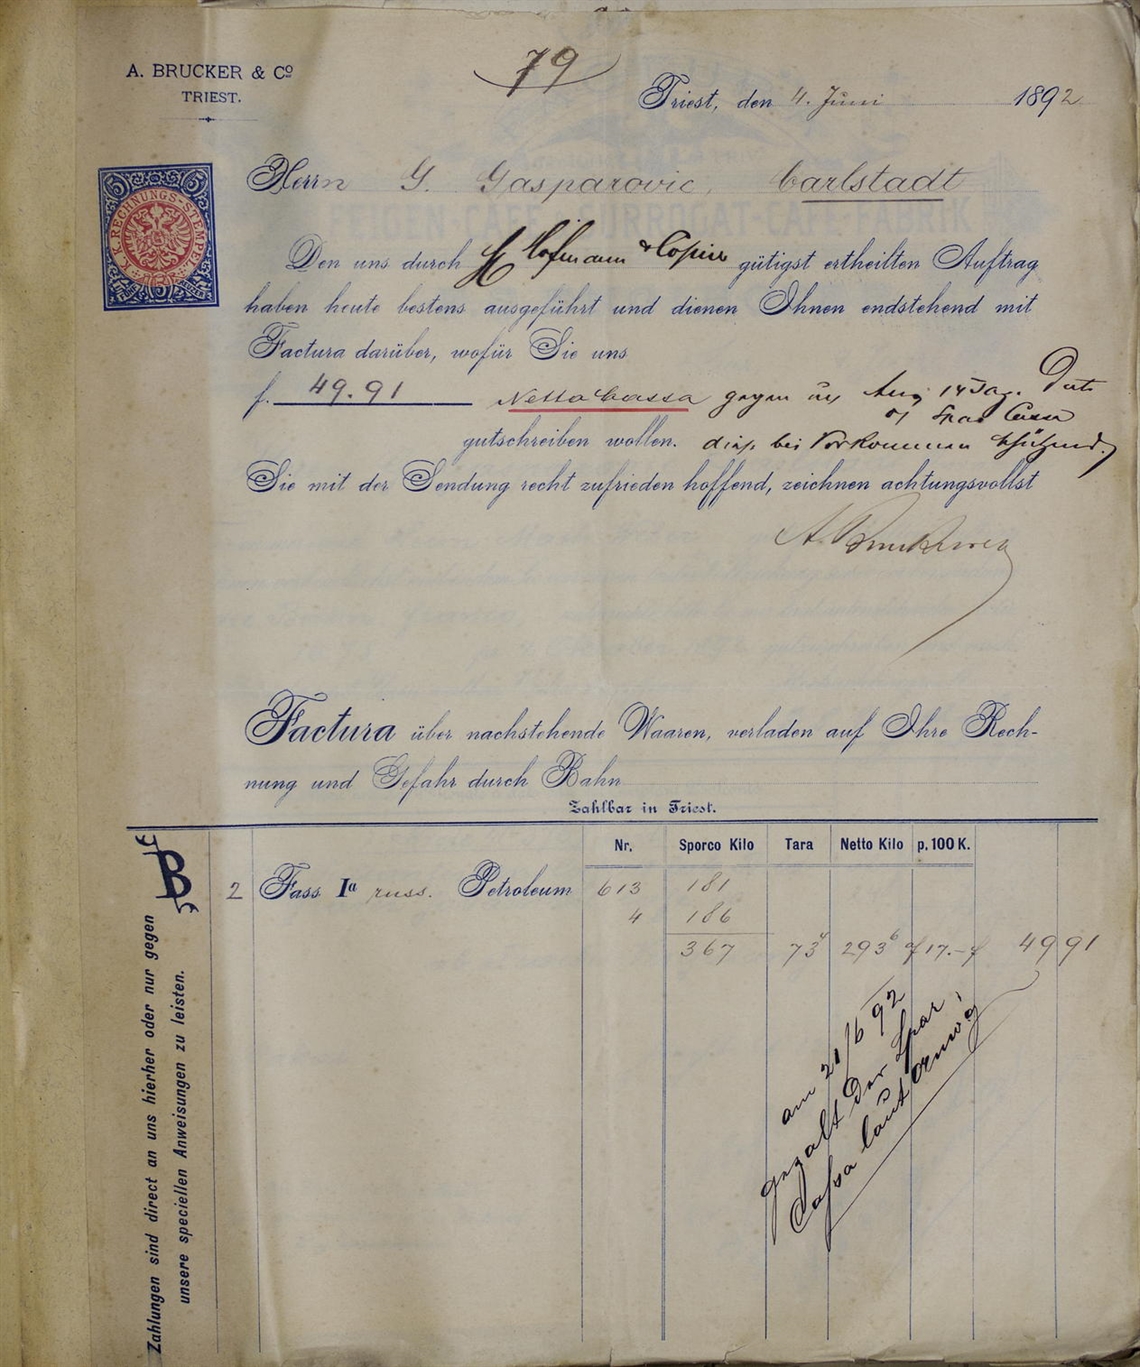 79
A. BRUCKER & Cº
TRIEST.
Triest, den 4. Juni 1892
5 5
K.K. RECHNUNGS-STEMPEL
Herrn G. Gasparovic, Carlstadt
Den uns durch H Hofmann & Copier gütigst ertheilten Auftrag
haben heute bestens ausgeführt und dienen Ihnen endstehend mit
Factura darüber, wofür Sie uns
f. 49.91 Netto Cassa gegen
gutschreiben wollen. bei Vorkommen
Sie mit der Sendung recht zufrieden hoffend, zeichnen achtungsvollst
A. Brucker
Factura über nachstehende Waaren, verladen auf Ihre Rech-
nung und Gefahr durch Bahn
Zahlbar in Triest.
Nr. Sporco Kilo Tara Netto Kilo p. 100 K.
B 2 Fass Iª russ. Petroleum 613 181
4 186
367 73⁴ 293⁶ f 17.- f 49 91
am 21/6 92
gezalt der Spar
Cassa laut
Zahlungen sind direct an uns hierher oder nur gegen
unsere speciellen Anweisungen zu leisten.